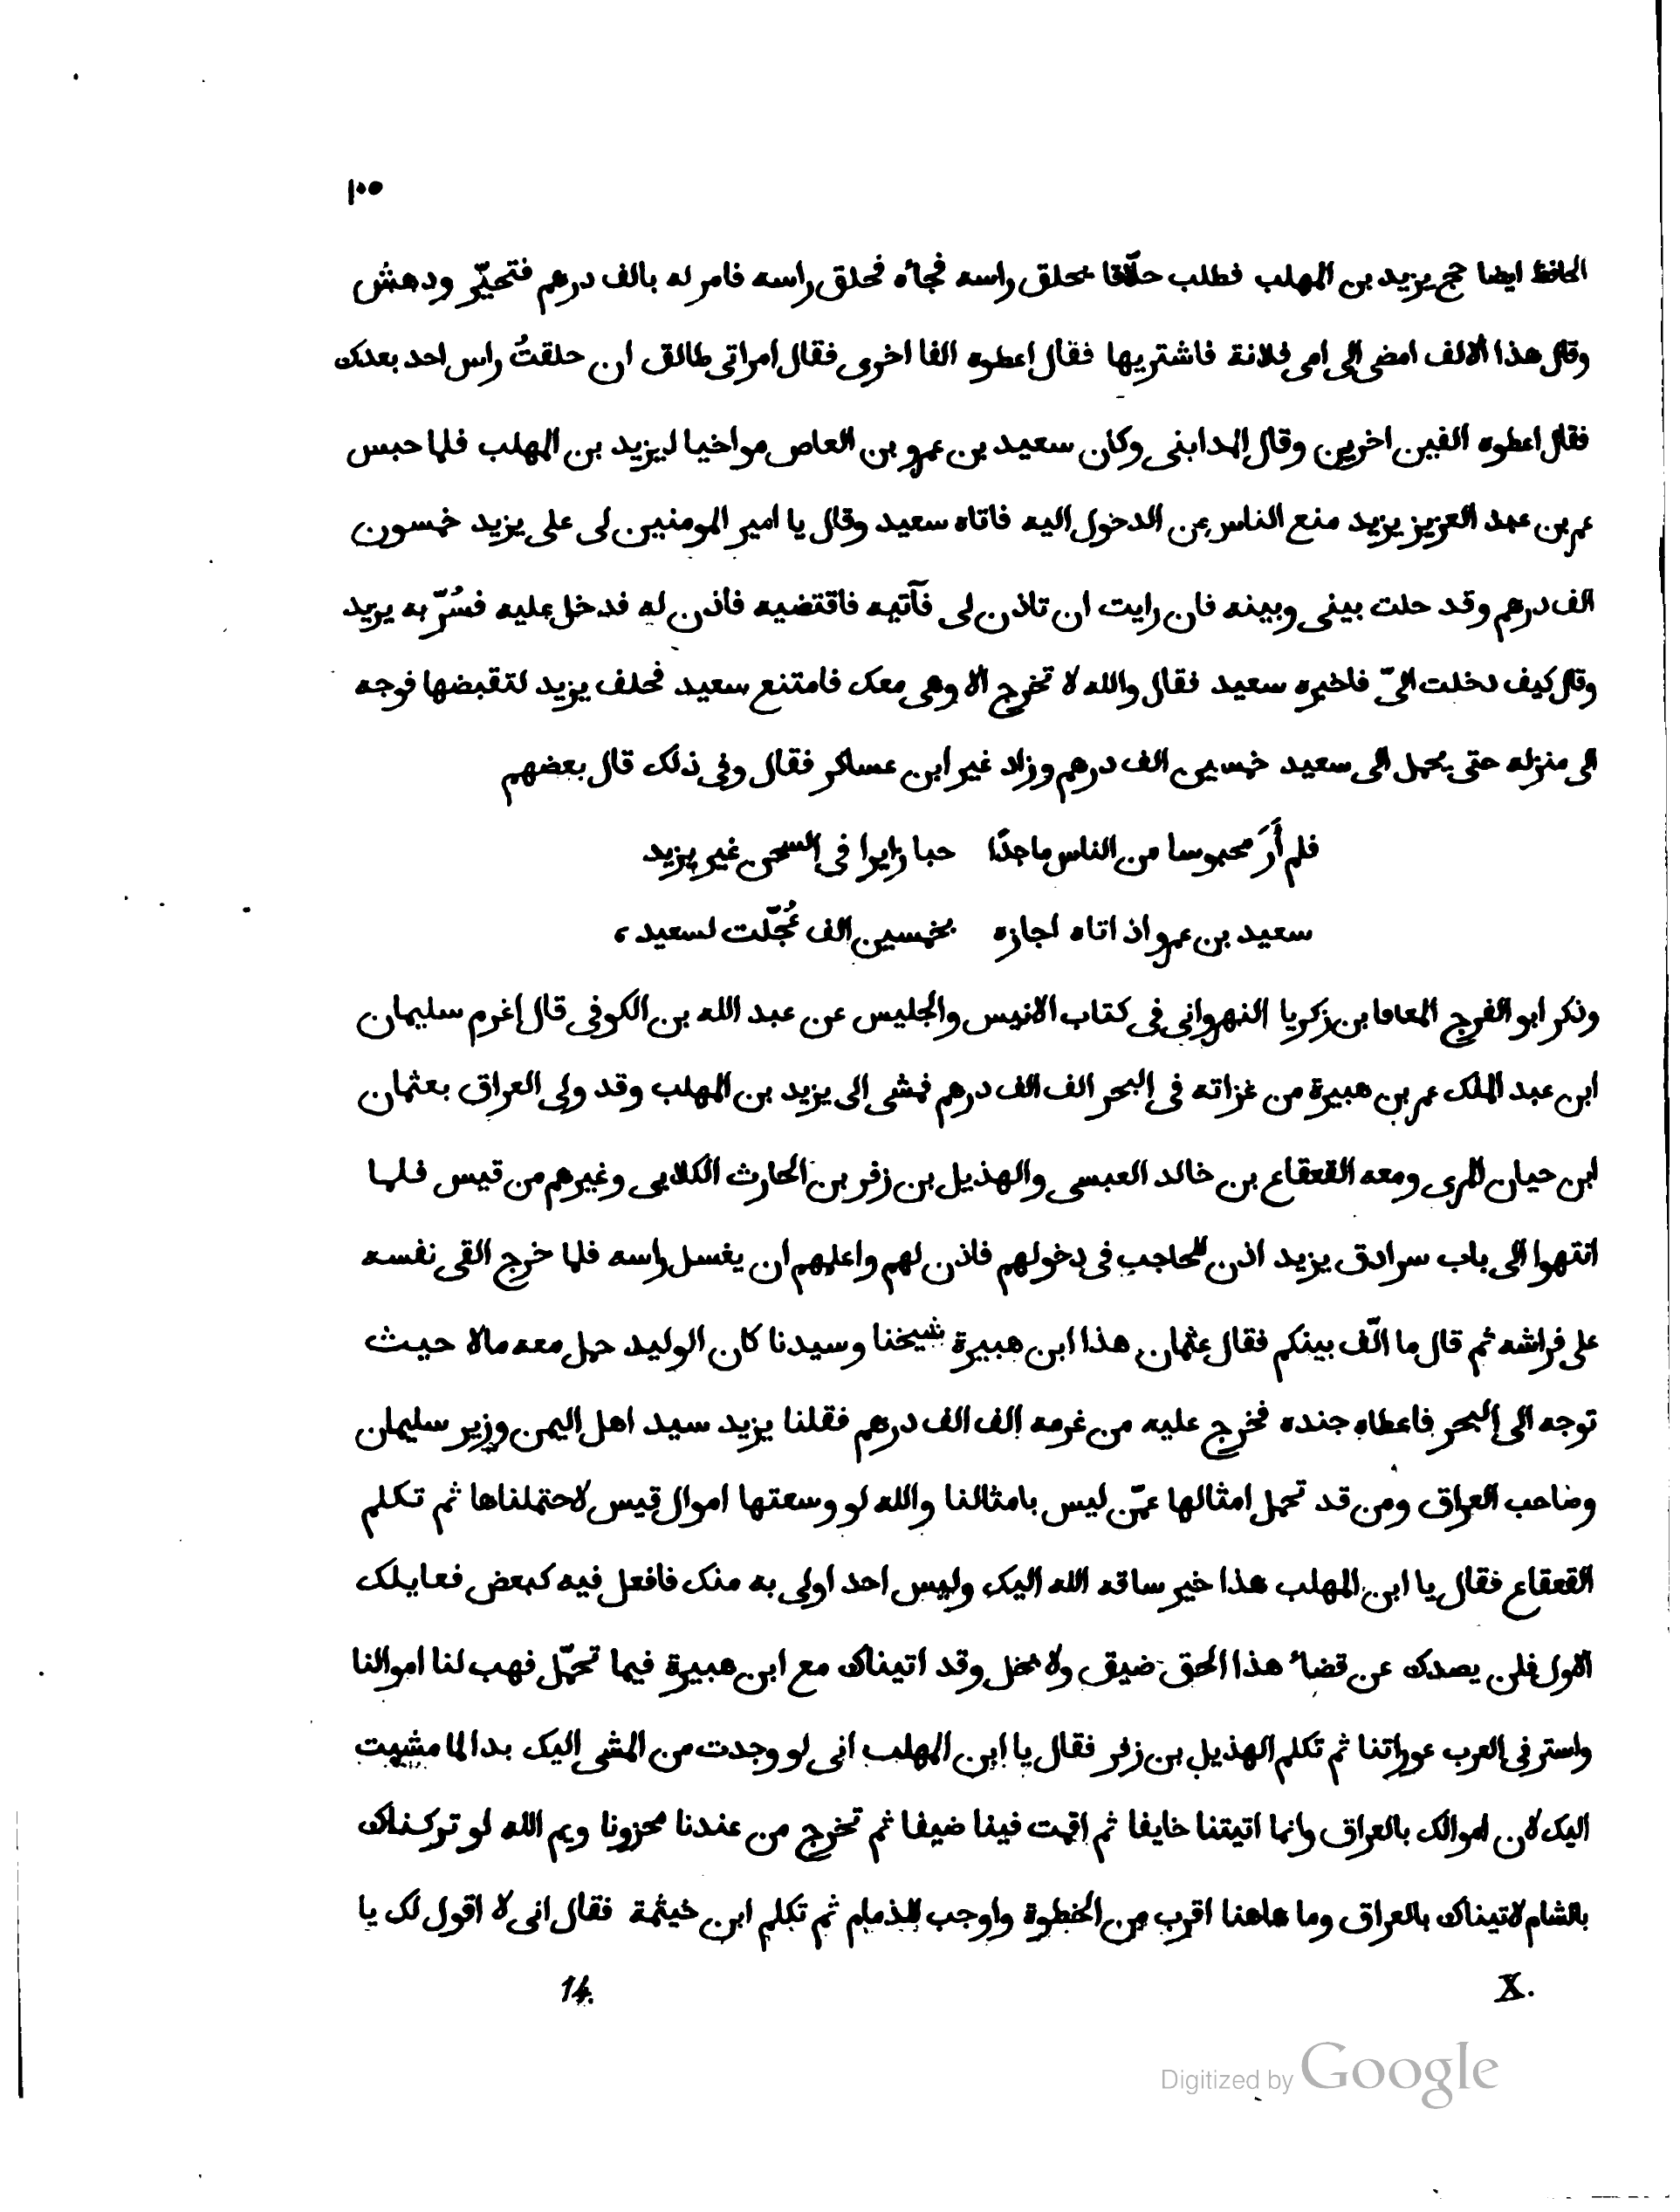 ١٠٥
الحافظ ايضا حج يزيد بن المهلب فطلب حلّاقا يحلق راسه فجاءه فحلق راسه فامر له بالف درهم فتحيّر ودهش
وقال هذا الالف امضى الى امى فلانة فاشتريها فقال اعطوه الفا اخرى فقال امراتى طالق ان حلقتُ راس احد بعدك
فقال اعطوه الفين اخريين وقال المدابنى وكان سعيد بن عمرو بن العاص مواخيا ليزيد بن المهلب فلما حبس
عمر بن عبد العزيز يزيد منع الناس من الدخول اليه فاتاه سعيد وقال يا امير المومنين لى على يزيد خمسون
الف درهم وقد حلت بينى وبينه فان رايت ان تاذن لى فآتيه فاقتضيه فاذن له فدخل عليه فسُرّ به يزيد
وقال كيف دخلت الىّ فاخبره سعيد فقال والله لا تخرج الا وهى معك فامتنع سعيد فحلف يزيد لتقبضها فوجه
الى منزله حتى يحمل الى سعيد خمسين الف درهم وزاد غير ابن عساكر فقال وفى ذلك قال بعضهم
فلم أرَ محبوسا من الناس ماجدًا حبا زايرا فى السجن غير يزيد
سعيد بن عمرو اذ اتاه اجازه بخمسين الف عُجّلت لسعيد ،
وذكر ابو الفرج المعافا بن زكريا النهروانى فى كتاب الانيس والجليس عن عبد الله بن الكوفى قال اغرم سليمان
ابن عبد الملك عمر بن هبيرة من غزاته فى البحر الف الف درهم فمشى الى يزيد بن المهلب وقد ولى العراق بعثمان
ابن حيان المرى ومعه القعقاع بن خالد العبسى والهذيل بن زفر بن الحارث الكلابى وغيرهم من قيس فلما
انتهوا الى باب سرادق يزيد اذن للحاجب فى دخولهم فاذن لهم واعلمهم ان يغسل راسه فلما خرج القى نفسه
على فراشه ثم قال ما الّف بينكم فقال عثمان هذا ابن هبيرة شيخنا وسيدنا كان الوليد حمل معه مالا حيث
توجه الى البحر فاعطاه جنده فخرج عليه من غرمه الف الف درهم فقلنا يزيد سيد اهل اليمن وزير سليمان
وصاحب العراق ومن قد تحمل امثالها عمّن ليس بامثالنا والله لو وسعتها اموال قيس لاحتملناها ثم تكلم
القعقاع فقال يا ابن المهلب هذا خير ساقه الله اليك وليس احد اولى به منك فافعل فيه كبعض فعايلك
الاول فلن يصدك عن قضاء هذا الحق ضيق ولا بخل وقد اتيناك مع ابن هبيرة فيما تحمّل فهب لنا اموالنا
واستر فى العرب عوراتنا ثم تكلم الهذيل بن زفر فقال يا ابن المهلب انى لو وجدت من المشى اليك بدا لما مشيت
اليك لان اموالك بالعراق وانما اتيتنا خايفا ثم اقمت فينا ضيفا ثم تخرج من عندنا محزونا ويم الله لو تركناك
بالشام لاتيناك بالعراق وما هاهنا اقرب من الخطوة واوجب للذمام ثم تكلم ابن خيثمة فقال انى لا اقول لك يا
X. 14.
Digitized by Google